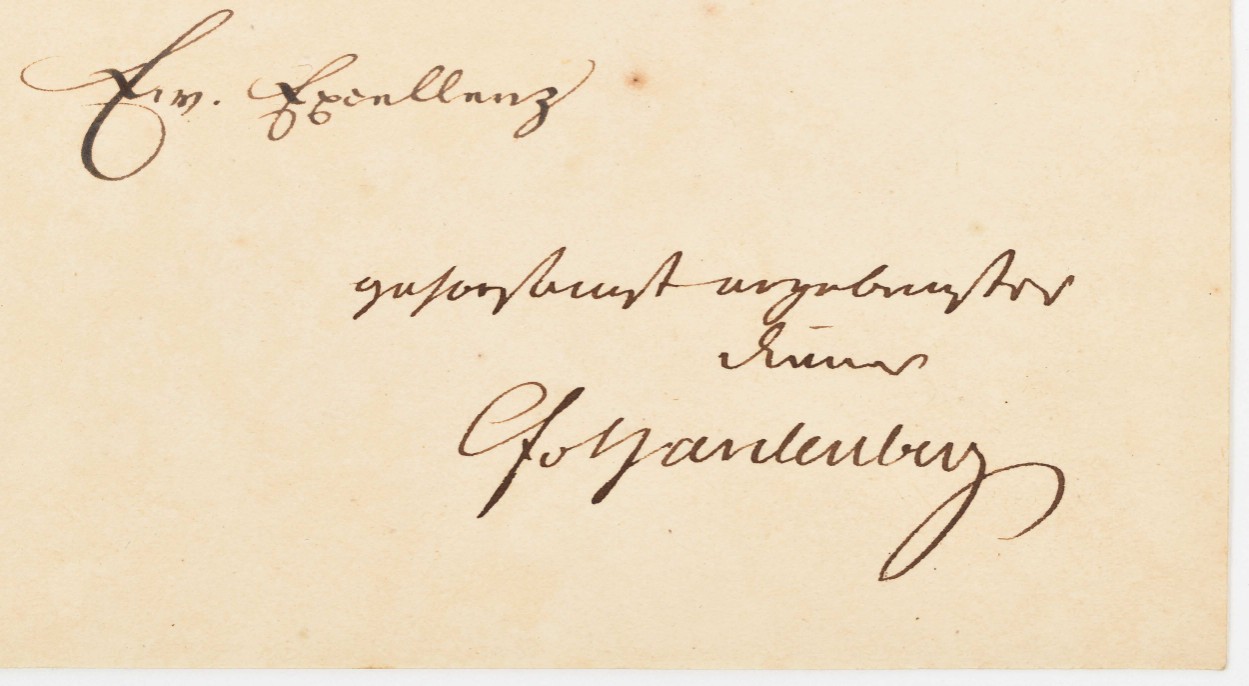 Ew. Excellenz
gehorsamst ergebenster
Diener
Hardenberg